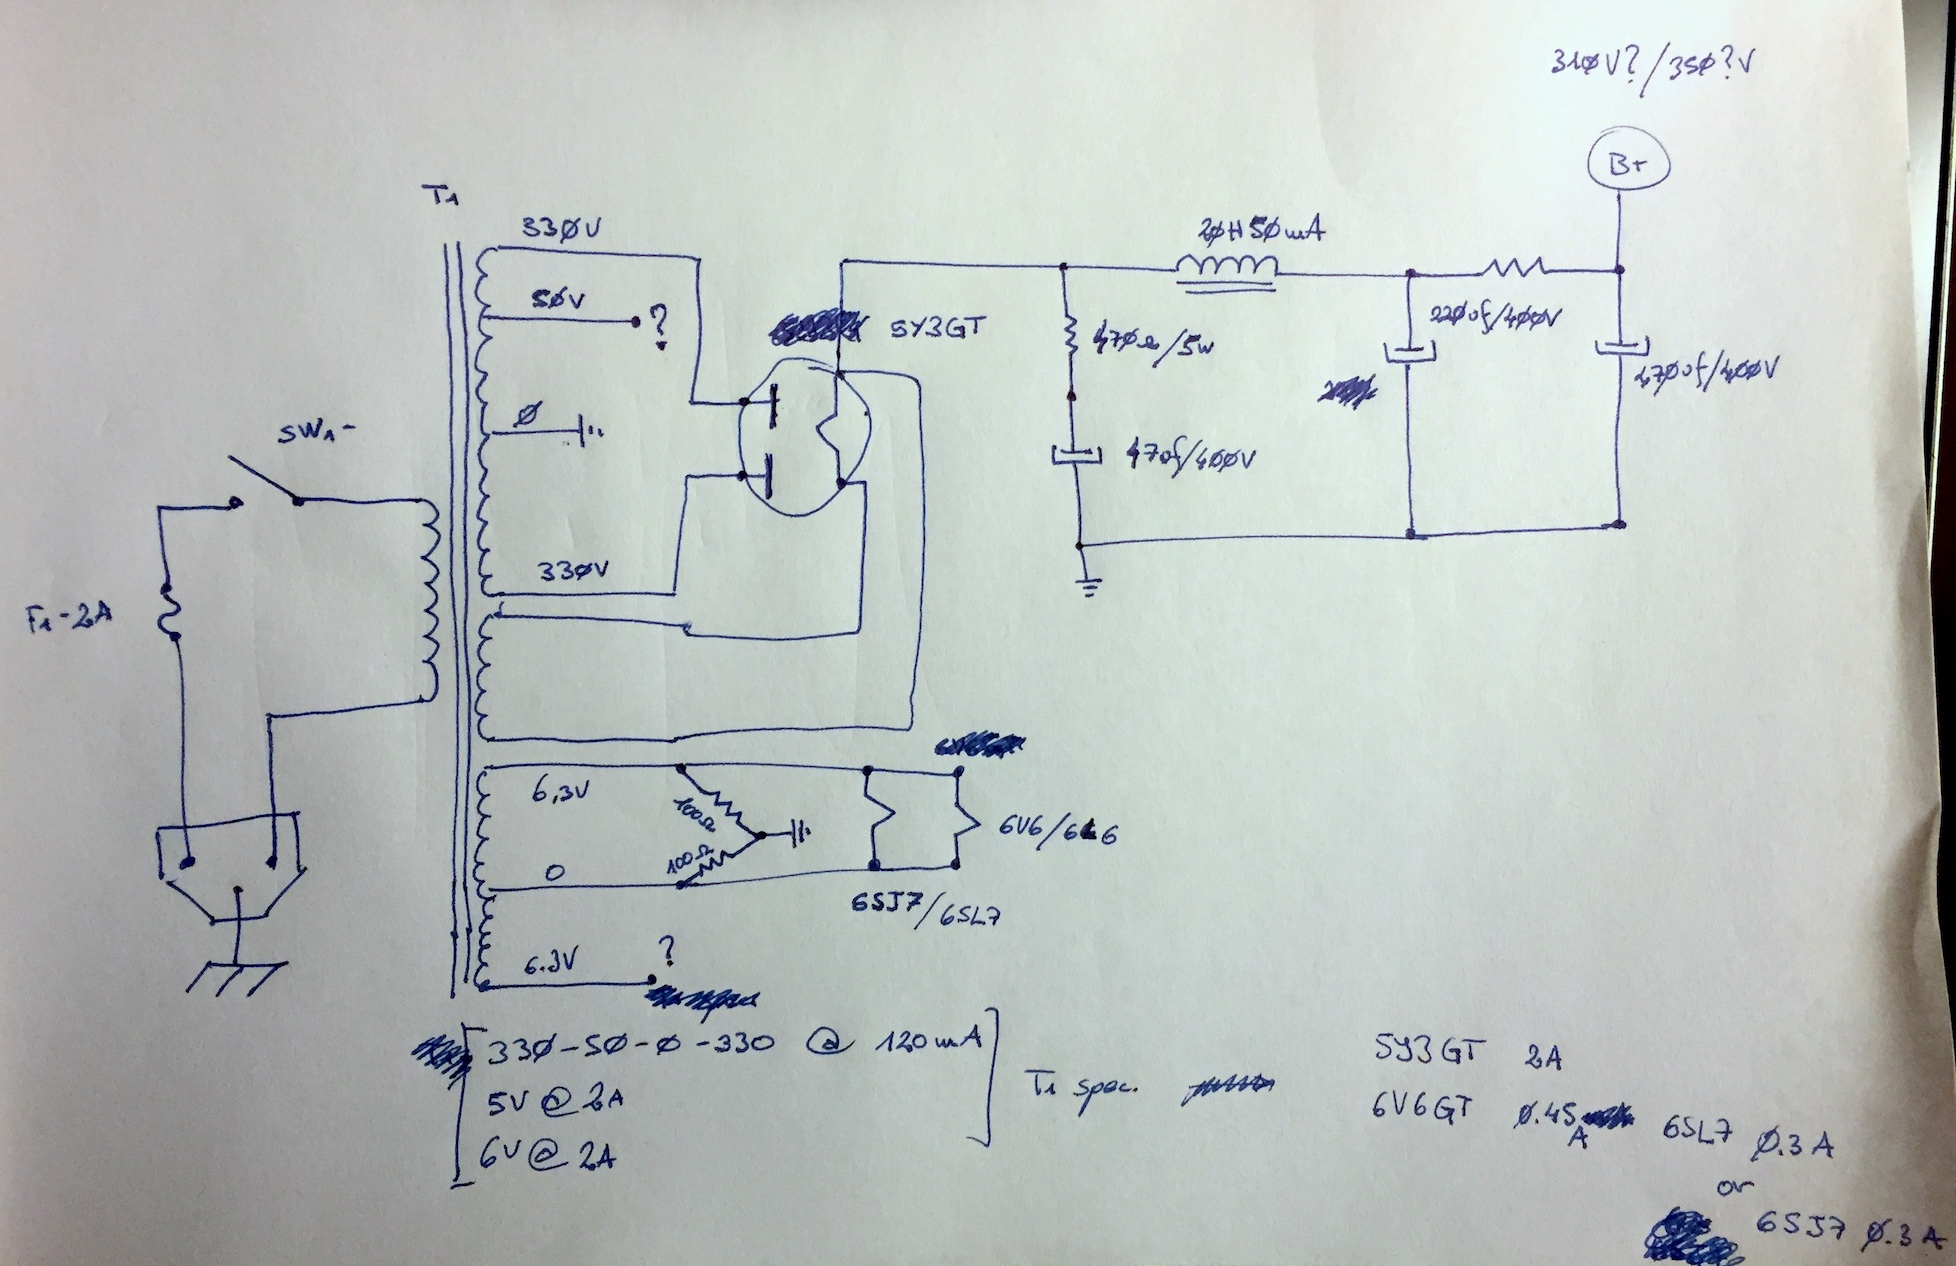 310V?/350?V
B+
T1
330V
20H 50mA
50V
?
5Y3GT
220uf/400V
470Ω/5w
470uf/400V
0
SW1-
47uf/400V
330V
F1-2A
6,3V
100Ω
6V6/6L6
100Ω
0
6SJ7/6SL7
6.3V
?
330-50-0-330 @ 120mA
5V @ 2A
6V @ 2A
T1 spec.
5Y3GT 2A
6V6GT 0.45A
6SL7 0.3A
or
6SJ7 0.3A